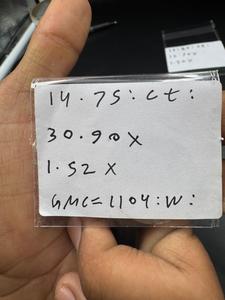 14.75:ct:
30.90x
1.52x
GMC=1104:W: